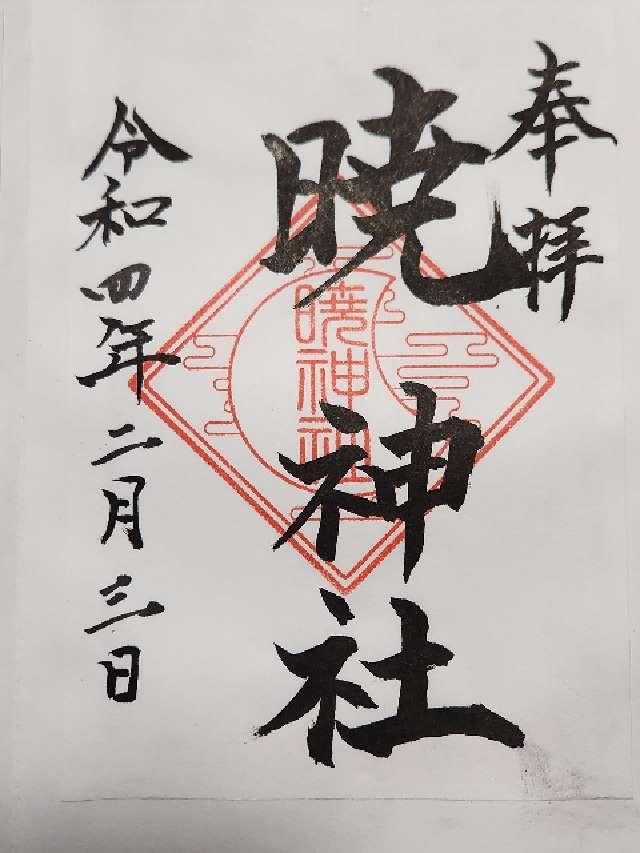 奉拝
暁神社
暁神社
令和四年二月三日